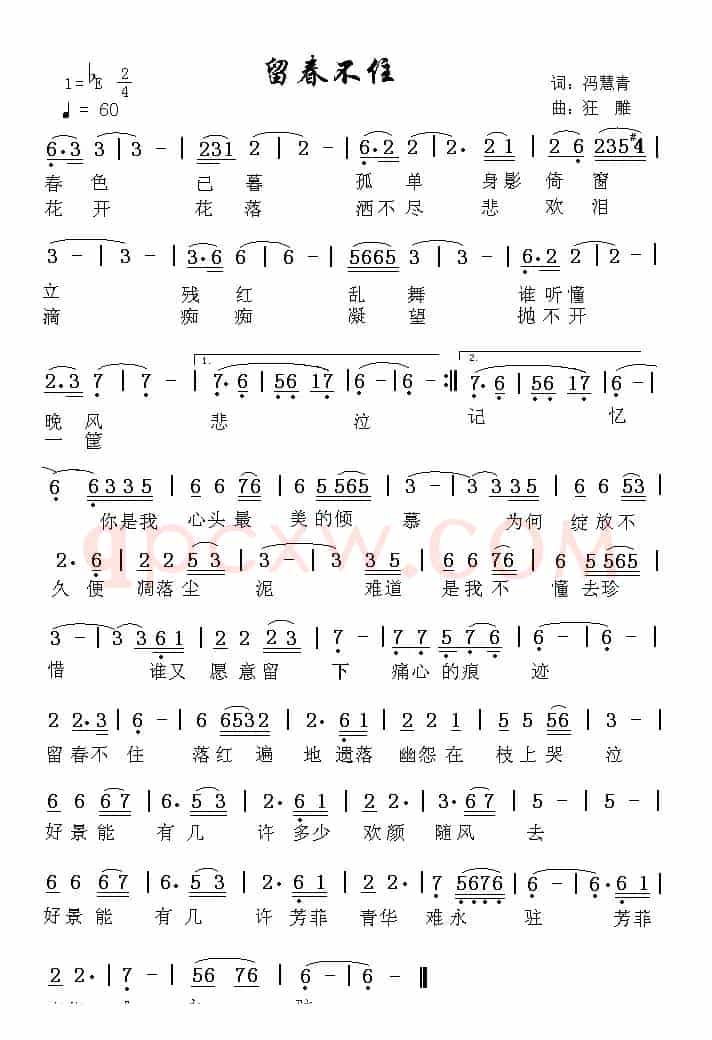 留春不住
1=♭E 2/4
♩= 60
词:冯慧青
曲:狂 雕
6·3 3 | 3 - | 231 2 | 2 - | 6·2 2 | 2· 21 | 2 6 235#4 |
春色 已暮 孤单 身影倚窗
花开 花落 洒不尽 悲欢泪
3 - | 3 - | 3·6 6 | 6 - | 5665 3 | 3 - | 6·2 2 | 2 - |
立 残红 乱舞 谁听懂
滴 痴痴 凝望 抛不开
1.
2.
2·3 7 | 7 - | 7·6 | 56 17 | 6 - | 6 - :‖ 7·6 | 56 17 | 6 - |
晚风 悲泣 记忆
一筐
6 6335 | 6 6 76 | 6 5 565 | 3 - | 3 3 335 | 6 6 53 |
你是我 心头最 美的倾 慕 为何 绽放不
qpcxw.com
2· 6 | 2 2 53 | 3 - | 3 35 | 6 6 76 | 6 5565 |
久便 凋落尘 泥 难道 是我不 懂去珍
3 - | 3 3361 | 2 2 23 | 7 - | 77 576 | 6 - | 6 - |
惜 谁又 愿意留 下 痛心的痕 迹
2 2·3 | 6 - | 6 6532 | 2· 61 | 2 2 1 | 5 5 56 | 6 - |
留春不 住 落红遍 地遗落 幽怨在 枝上哭 泣
6 6 67 | 6· 53 | 2· 61 | 2 2· | 3· 67 | 5 - | 5 - |
好景能 有几 许多少 欢颜 随风 去
6 6 67 | 6· 53 | 2· 61 | 2 2· | 7 5676 | 6 - | 6· 61 |
好景能 有几 许芳菲 青华 难永 驻 芳菲
2 2· | 7 - | 56 76 | 6 - | 6 - ‖